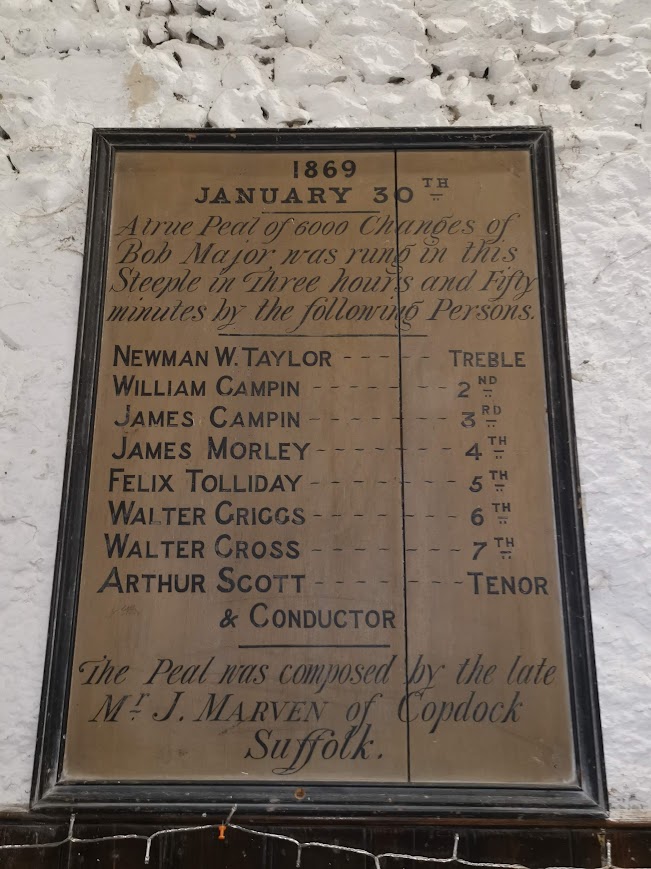 1869
JANUARY 30TH
A true Peal of 6000 Changes of
Bob Major was rung in this
Steeple in Three hours and Fifty
minutes by the following Persons.
NEWMAN W. TAYLOR - - - - - TREBLE
WILLIAM CAMPIN - - - - - - - 2ND
JAMES CAMPIN - - - - - - - 3RD
JAMES MORLEY - - - - - - - 4TH
FELIX TOLLIDAY - - - - - - - 5TH
WALTER GRIGGS - - - - - - - 6TH
WALTER CROSS - - - - - - - 7TH
ARTHUR SCOTT - - - - - - - TENOR
& CONDUCTOR
The Peal was composed by the late
Mr J. MARVEN of Copdock
Suffolk.